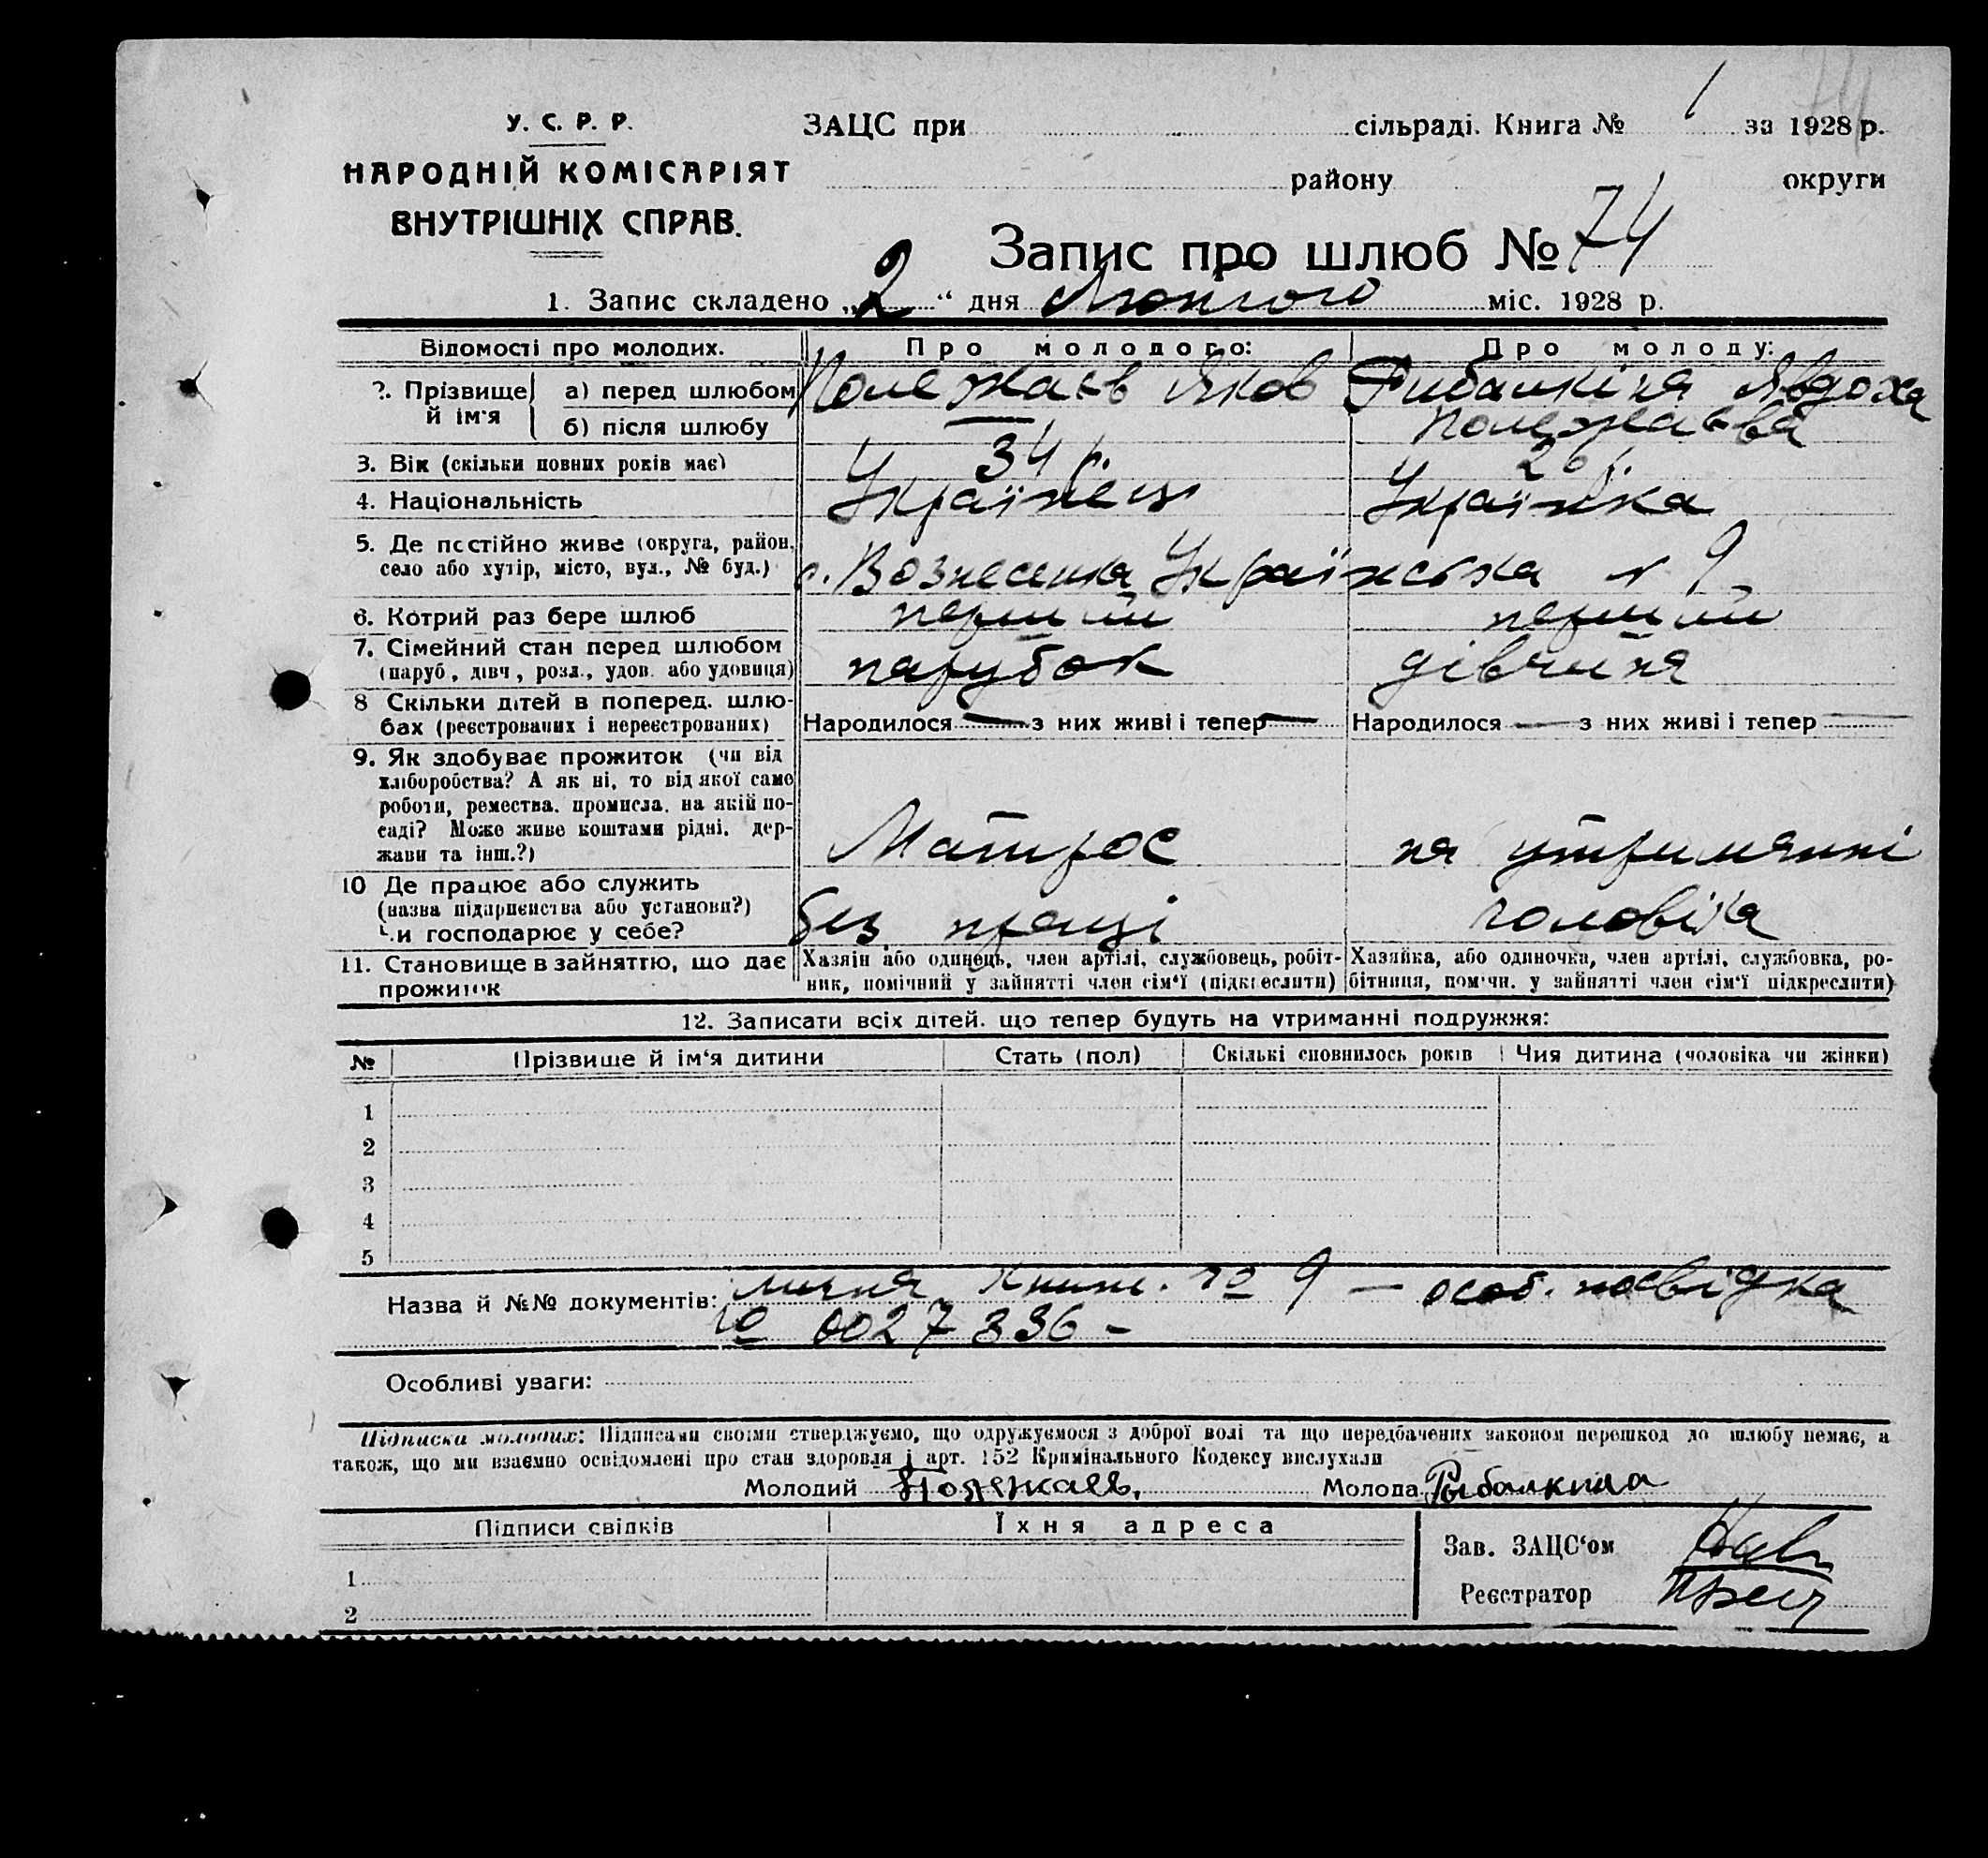 У. С. Р. Р.
НАРОДНІЙ КОМІСАРІЯТ
ВНУТРІШНІХ СПРАВ.
74
ЗАЦС при сільраді. Книга № 1 за 1928 р.
району округи
Запис про шлюб № 74
1. Запис складено „2“ дня Лютого міс. 1928 р.
Відомості про молодих. Про молодого: Про молоду:
2. Прізвище й ім'я
а) перед шлюбом Полежаєв Яков Рибалкіна Явдоха
б) після шлюбу — Полежаєва
3. Вік (скільки повних років має) 34 р. 26 р.
4. Національність Українець Українка
5. Де постійно живе (округа, район,
село або хутір, місто, вул., № буд.) с. Вознесенка Українська № 9
6. Котрий раз бере шлюб перший перший
7. Сімейний стан перед шлюбом
(паруб., дівч., розл., удов. або удовиця) парубок дівчина
8 Скільки дітей в поперед. шлю-
бах (реєстрованих і нереєстрованих) Народилося — з них живі і тепер — Народилося — з них живі і тепер —
9. Як здобуває прожиток (чи від
хліборобства? А як ні, то від якої саме
роботи, ремества, промисла, на якій по-
саді? Може живе коштами рідні, дер-
жави та інш.?) Матрос на утриманні
10 Де працює або служить
(назва підприємства або установи?)
Чи господарює у себе? без праці чоловіка
11. Становище в зайняттю, що дає
прожиток
Хазяїн або одинець, член артілі, службовець, робіт-
ник, помічний у зайнятті член сім'ї (підкреслити)
Хазяйка, або одиночка, член артілі, службовка, ро-
бітниця, помічн. у зайнятті член сім'ї підкреслити)
12. Записати всіх дітей, що тепер будуть на утриманні подружжя:
№ Прізвище й ім'я дитини Стать (пол) Скількі сповнилось років Чия дитина (чоловіка чи жінки)
1
2
3
4
5
Назва й №№ документів: лична книж. № 9 — особ. посвідка
№ 0027336 -
Особливі уваги:
Підписка молодих: Підписами своїми стверджуємо, що одружуємося з доброї волі та що передбачених законом перешкод до шлюбу немає, а
також, що ми взаємно освідомлені про стан здоровля і арт. 152 Кримінального Кодексу вислухали
Молодий Полежаев, Молода Рыбалкина
Підписи свідків Їхня адреса
Зав. ЗАЦС'ом
Реєстратор
1
2